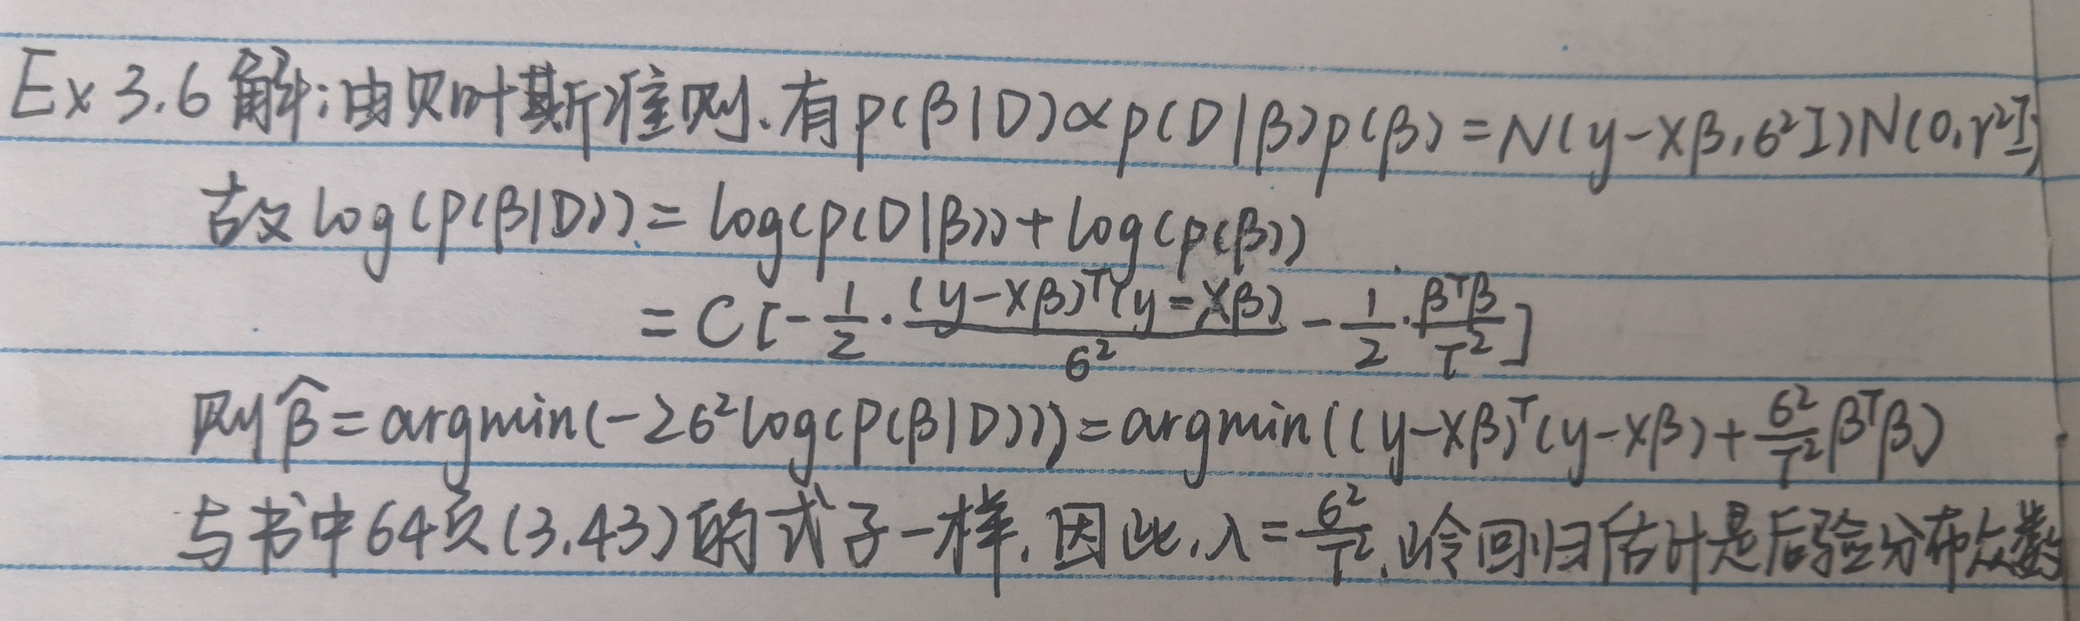 Ex 3.6 解:由贝叶斯准则、有p(β|D)∝p(D|β)p(β)=N(y-Xβ,σ²I)N(0,τ²I)
故 log(p(β|D))=log(p(D|β))+log(p(β))
=C[-1/2·(y-Xβ)ᵀ(y-Xβ)/σ²-1/2·βᵀβ/τ²]
则β̂=argmin(-2σ²log(p(β|D)))=argmin((y-Xβ)ᵀ(y-Xβ)+σ²/τ²βᵀβ)
与书中64页(3.43)的式子一样.因此,λ=σ²/τ²,岭回归估计是后验分布众数